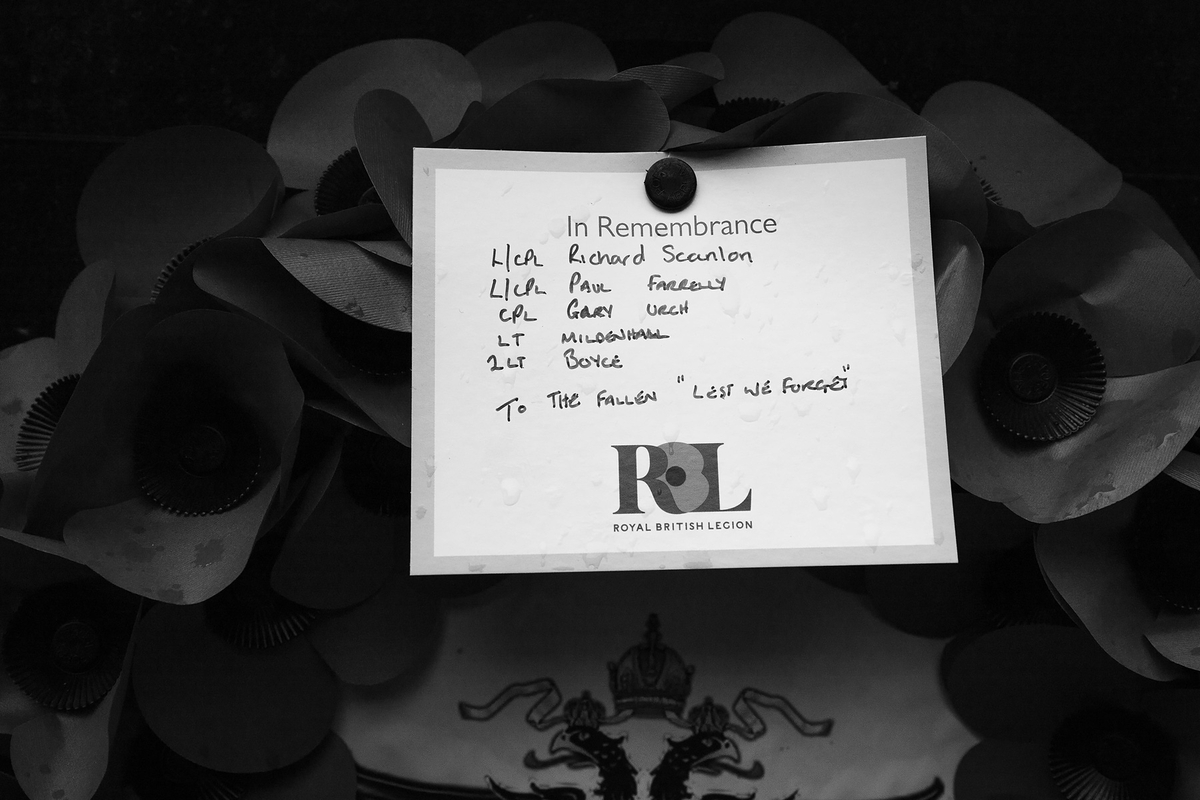 In Remembrance
L/CPL Richard Scanlon
L/CPL PAUL FARRELLY
CPL GARY URCH
LT MILDENHALL
2LT BOYCE
TO THE FALLEN "LEST WE FORGET"
RBL
ROYAL BRITISH LEGION